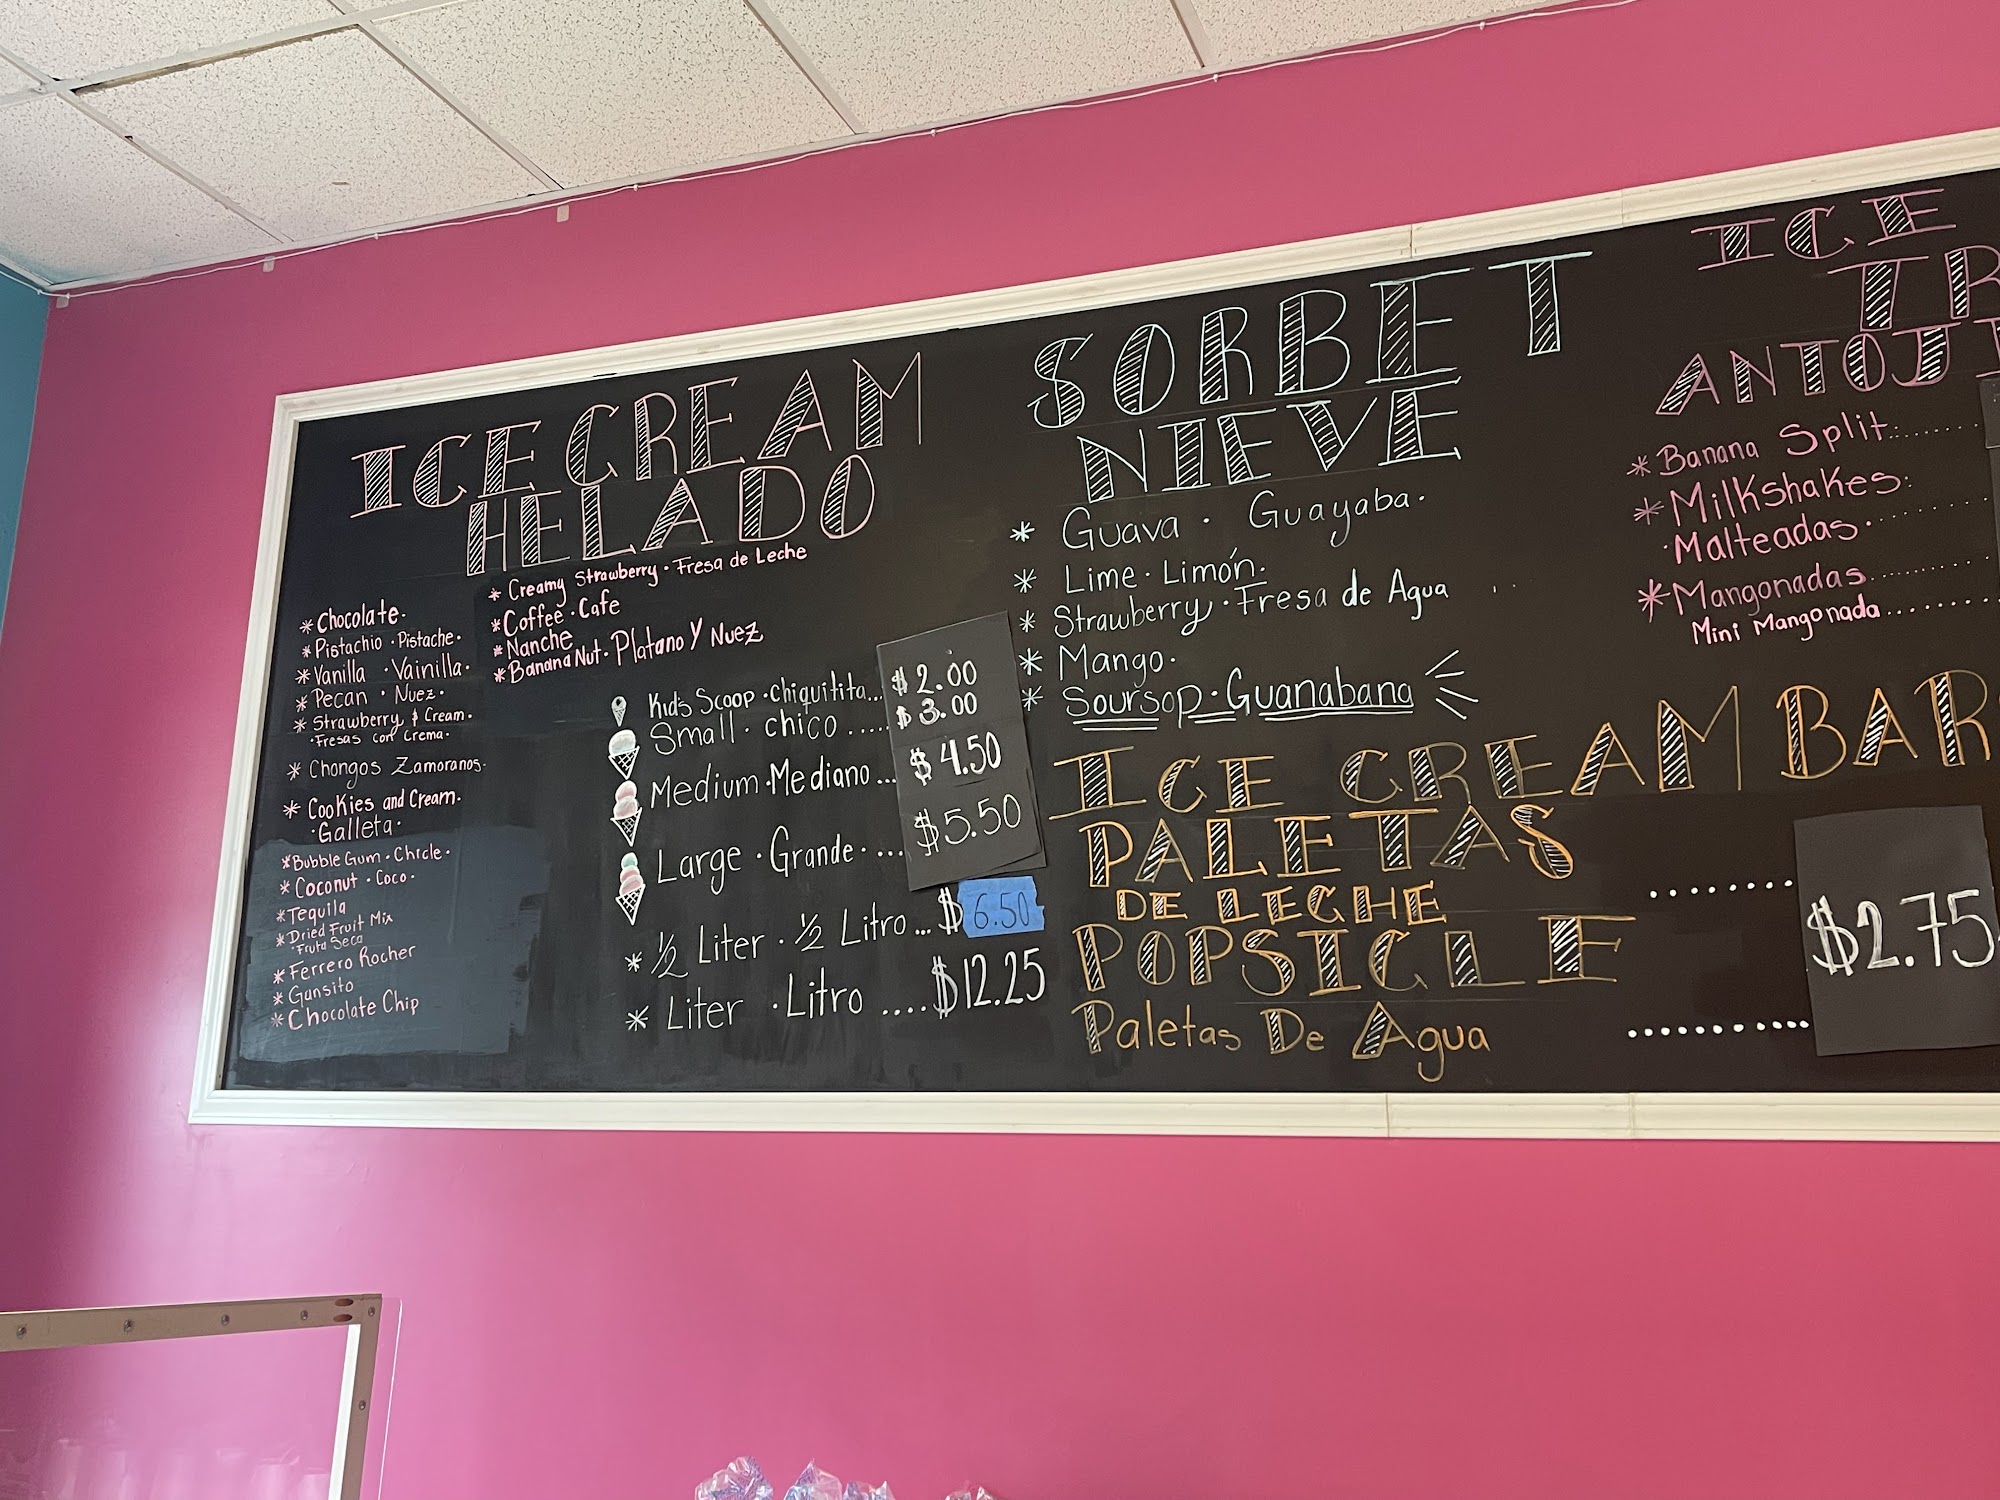 ICE CREAM
HELADO
* Chocolate.
* Pistachio · Pistache.
* Vanilla · Vainilla.
* Pecan · Nuez.
* Strawberry & Cream.
· Fresas con Crema.
* Chongos Zamoranos.
* Cookies and Cream.
· Galleta.
* Bubble Gum · Chicle.
* Coconut · Coco.
* Tequila
* Dried Fruit Mix
· Fruta Seca
* Ferrero Rocher
* Gansito
* Chocolate Chip
* Creamy Strawberry · Fresa de Leche
* Coffee · Cafe
* Nanche
* Banana Nut · Platano Y Nuez
Kid's Scoop · Chiquitita... $2.00
Small · chico ..... $3.00
Medium · Mediano ... $4.50
Large · Grande · ... $5.50
* 1/2 Liter · 1/2 Litro ... $6.50
* Liter · Litro .... $12.25
SORBET
NIEVE
* Guava · Guayaba.
* Lime · Limón.
* Strawberry · Fresa de Agua
* Mango.
* Soursop · Guanabana
ICE CREAM BAR
PALETAS
DE LECHE ........
POPSICLE $2.75
Paletas De Agua ...........
ICE
TR
ANTOJI
* Banana Split:.........
* Milkshakes:
· Malteadas. .........
* Mangonadas.........
Mini Mangonada.........